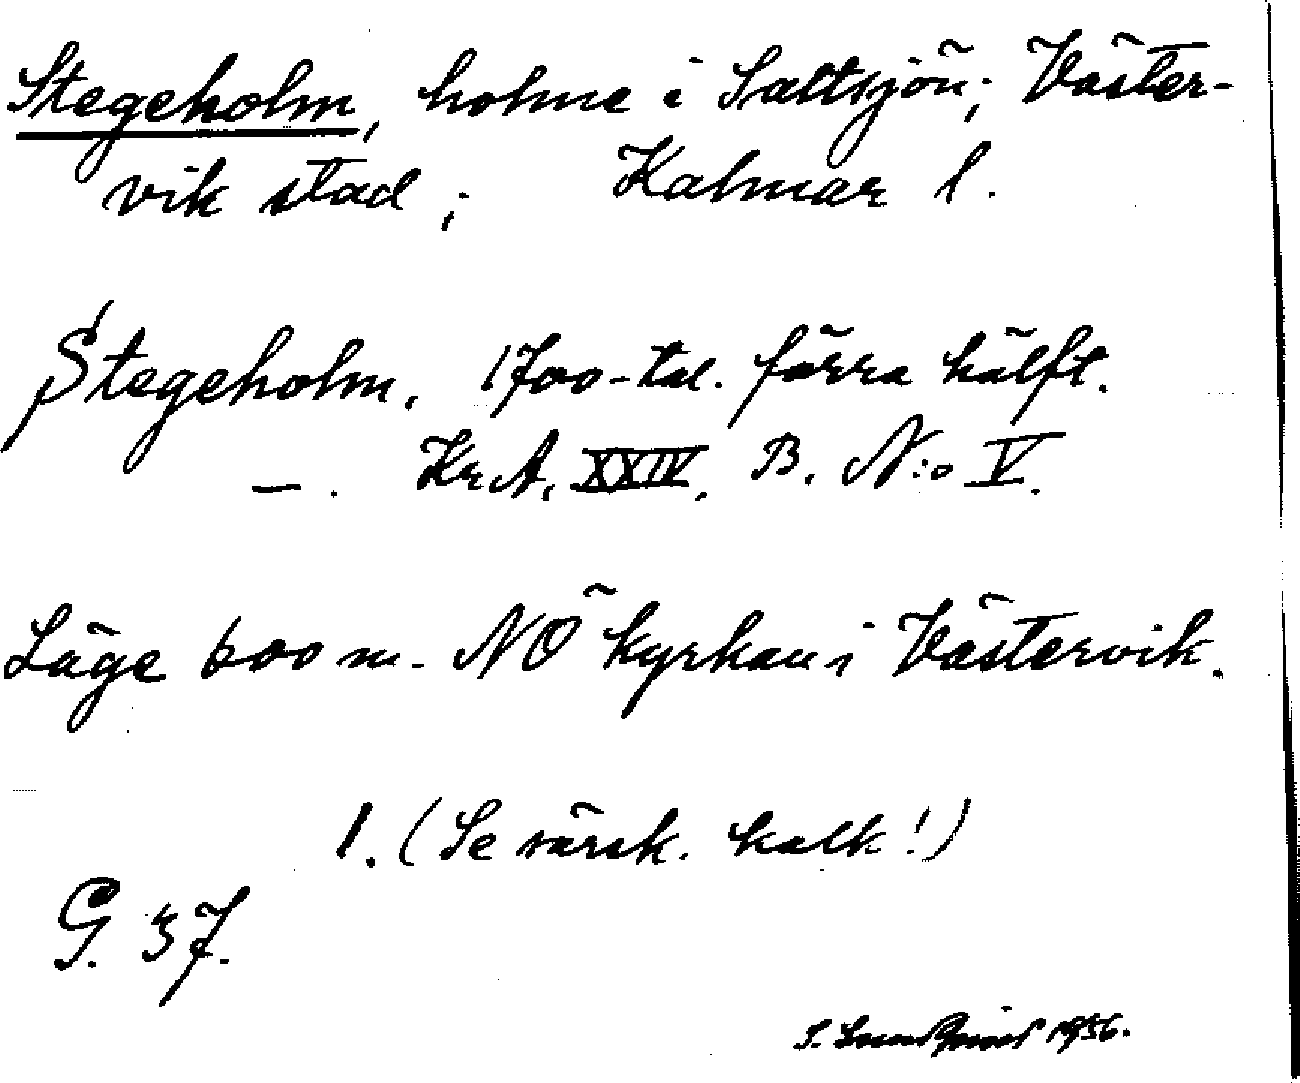 Stegeholm, holme i Saltsjön; Väster-
vik stad; Kalmar l.
Stegeholm. 1700-tal. förra hälft.
—. Kr.A. XXIV. B. N:o V.
Läge 600 m. NÖ kyrkan i Västervik.
1. (Se särsk. kalk!)
G. 37.
S. 1956.